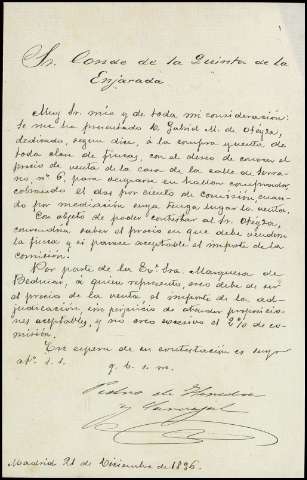 Sr. Conde de la Quinta de la
Enjarada
Muy Sr. mío y de toda mi consideración:
Se me ha presentado D. Gabriel M. de Oteyza,
dedicado, segun dice, á la compra y venta de
toda clase de fincas, con el deseo de conocer el
precio de venta de la casa de la calle de Serra-
no nº 6, para ocuparse en hallar comprador,
cobrando el dos por ciento de comisión, cuan-
do por mediación suya tenga lugar la venta.
Con objeto de poder contestar al Sr. Oteyza,
convendría saber el precio en que debe venderse
la finca y si parece aceptable el importe de la
comisión.
Por parte de la Exª Sra. Marquesa de
Bedmar, á quien represento, creo debe de ser
el precio de la venta el importe de la ad-
judicación, sin perjuicio de atender proposicio-
nes aceptables, y no creo excesivo el 2% de co-
misión.
En espera de su contestación es suyo
atº. s. s.
q. b. s. m.
Pedro de
y Carvajal
Madrid 21 de Diciembre de 1896.